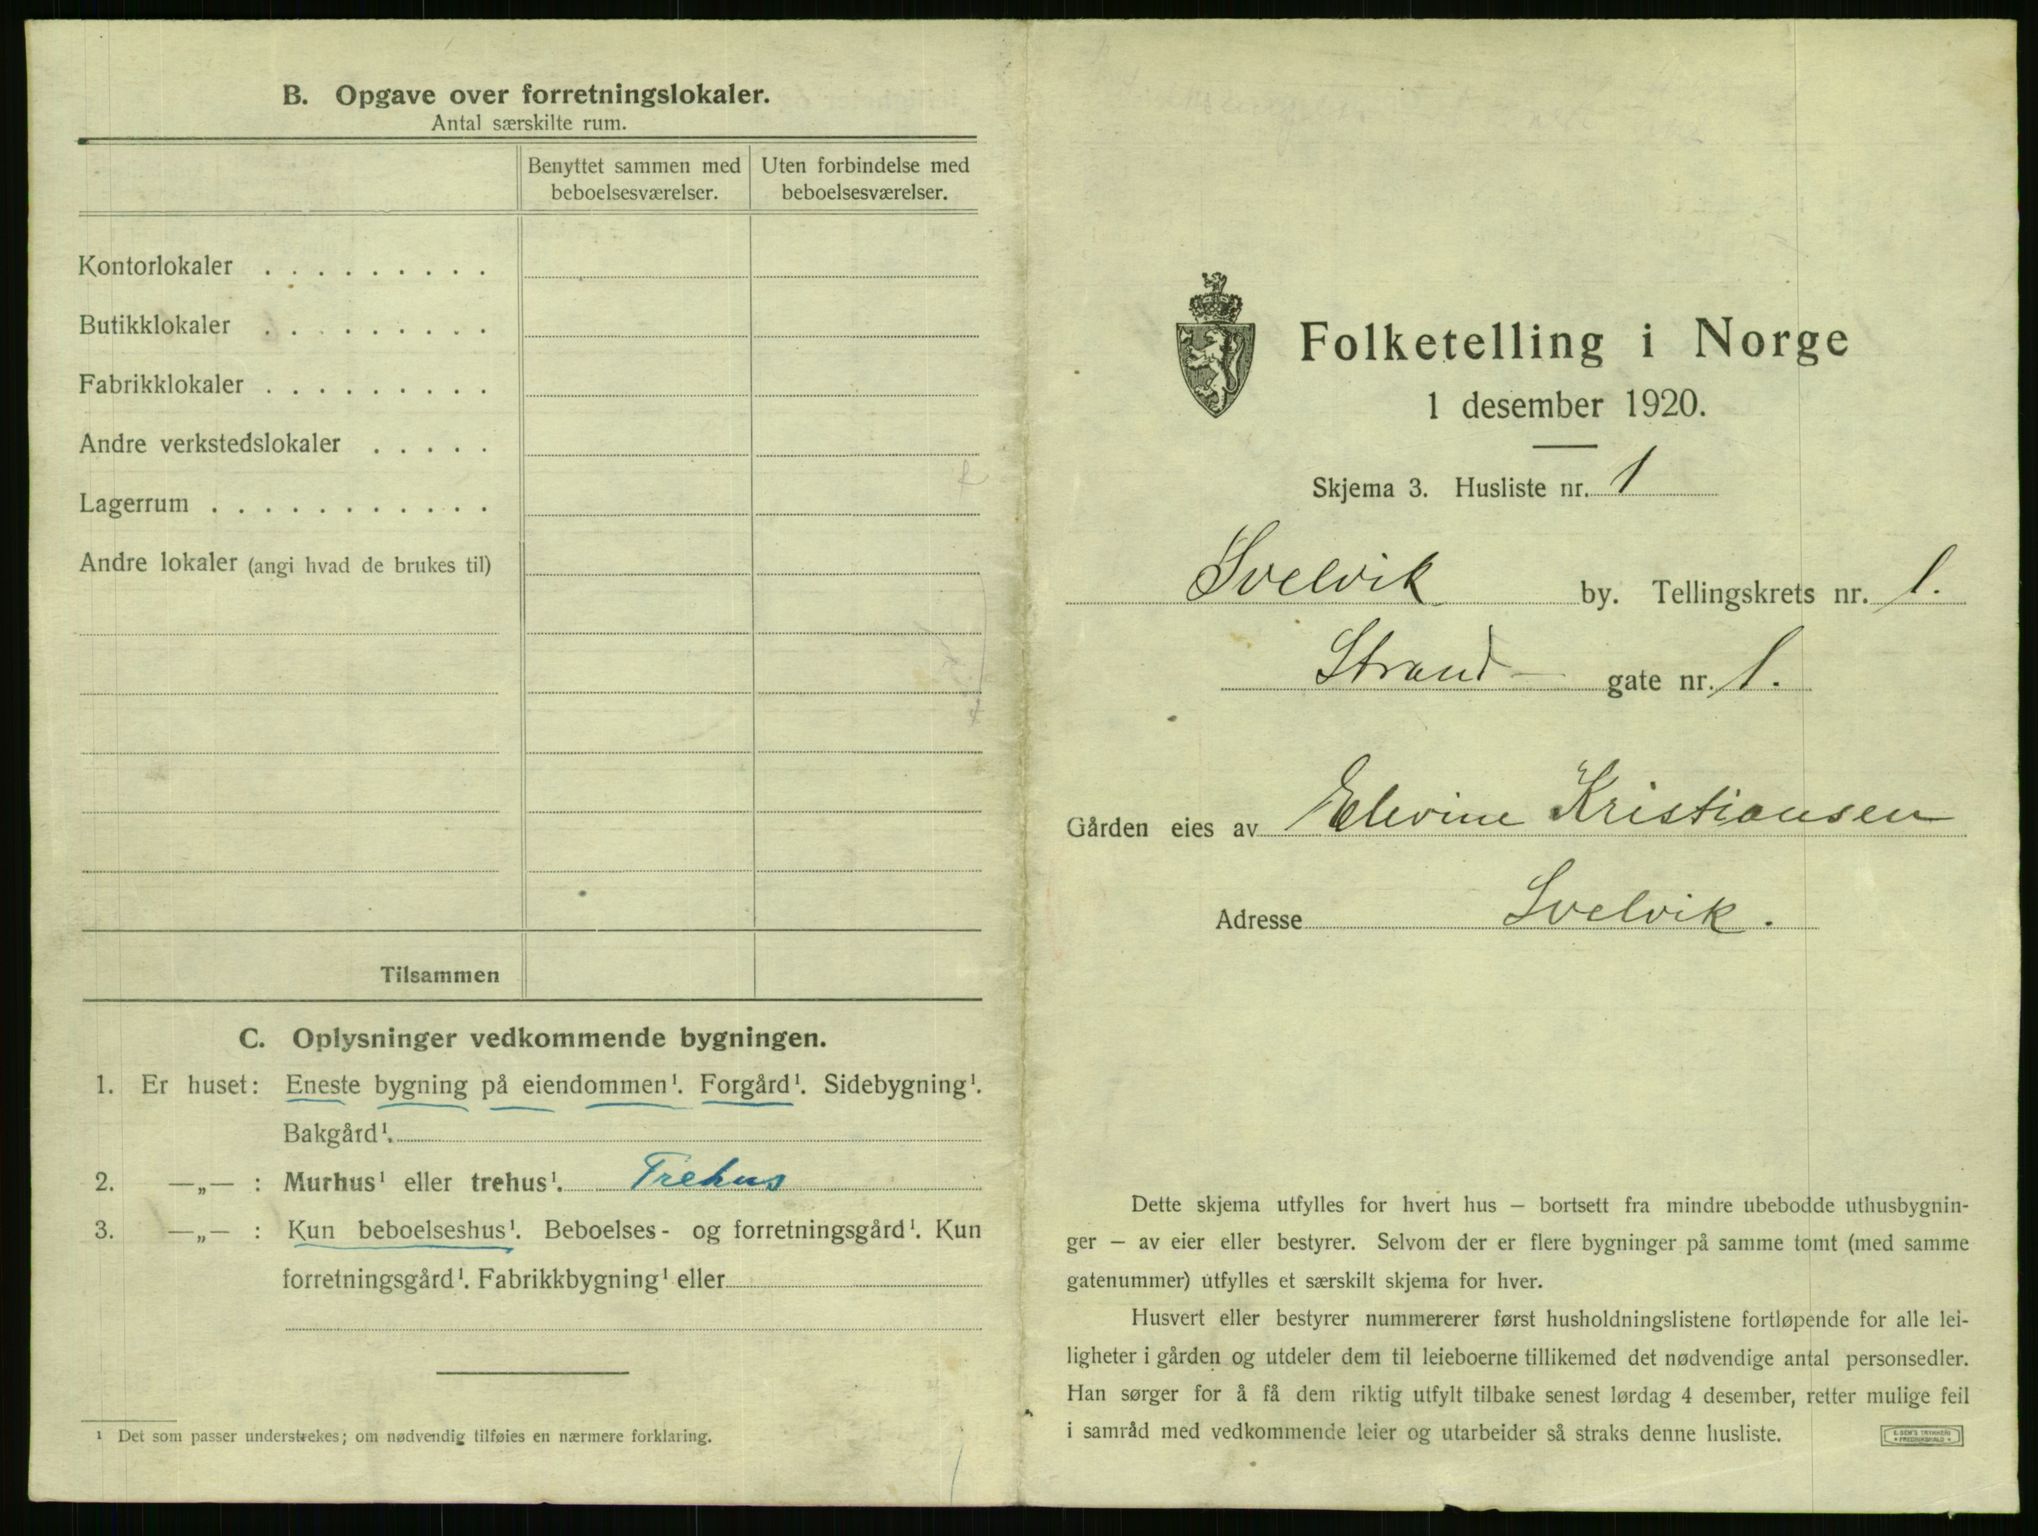 B. Opgave over forretningslokaler.
Antal særskilte rum.
Benyttet sammen med beboelsesværelser.
Uten forbindelse med beboelsesværelser.
Kontorlokaler . . . . . . . . .
Butikklokaler . . . . . . . . .
Fabrikklokaler . . . . . . . . .
Andre verkstedslokaler . . . . .
Lagerrum . . . . . . . . . . .
Andre lokaler (angi hvad de brukes til)
Tilsammen
C. Oplysninger vedkommende bygningen.
1. Er huset: Eneste bygning på eiendommen¹. Forgård¹. Sidebygning¹.
Bakgård¹.
2. —„— : Murhus¹ eller trehus¹. Trehus
3. —„— : Kun beboelseshus¹. Beboelses- og forretningsgård¹. Kun
forretningsgård¹. Fabrikkbygning¹ eller
¹ Det som passer understrekes; om nødvendig tilføies en nærmere forklaring.
Folketelling i Norge
1 desember 1920.
Skjema 3. Husliste nr. 1
Svelvik by. Tellingskrets nr. 1.
Strand- gate nr. 1.
Gården eies av Elevine Kristiansen
Adresse Svelvik.
Dette skjema utfylles for hvert hus – bortsett fra mindre ubebodde uthusbygnin-
ger – av eier eller bestyrer. Selvom der er flere bygninger på samme tomt (med samme
gatenummer) utfylles et særskilt skjema for hver.
Husvert eller bestyrer nummererer først husholdningslistene fortløpende for alle lei-
ligheter i gården og utdeler dem til leieboerne tillikemed det nødvendige antal personsedler.
Han sørger for å få dem riktig utfylt tilbake senest lørdag 4 desember, retter mulige feil
i samråd med vedkommende leier og utarbeider så straks denne husliste.